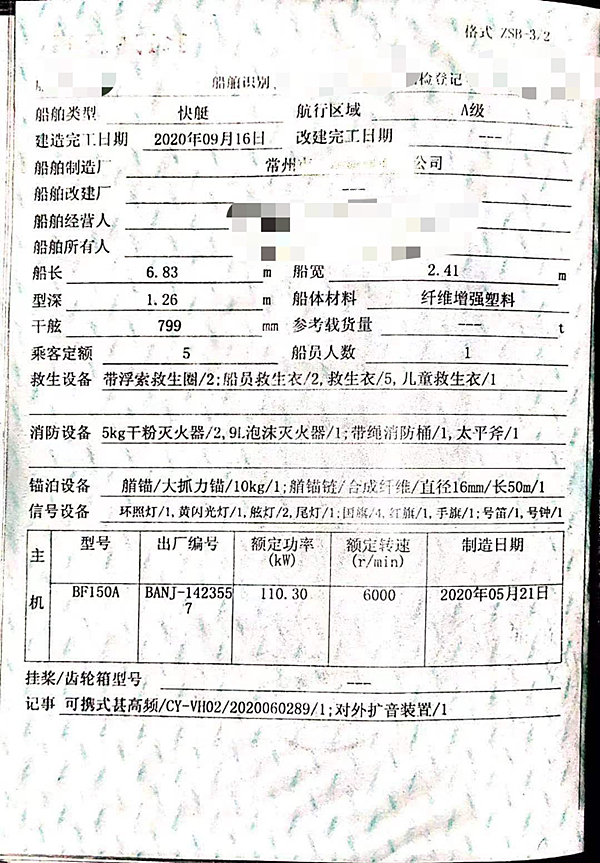 格式 ZSB-3/2
船舶识别 检登记
船舶类型 快艇 航行区域 A级
建造完工日期 2020年09月16日 改建完工日期 ---
船舶制造厂 常州 公司
船舶改建厂 ---
船舶经营人
船舶所有人
船长 6.83 m 船宽 2.41 m
型深 1.26 m 船体材料 纤维增强塑料
干舷 799 mm 参考载货量 --- t
乘客定额 5 船员人数 1
救生设备 带浮索救生圈/2;船员救生衣/2,救生衣/5,儿童救生衣/1
消防设备 5kg干粉灭火器/2,9L泡沫灭火器/1;带绳消防桶/1,太平斧/1
锚泊设备 艏锚/大抓力锚/10kg/1;艏锚链/合成纤维/直径16mm/长50m/1
信号设备 环照灯/1,黄闪光灯/1,舷灯/2,尾灯/1;国旗/4,红旗/1,手旗/1;号笛/1,号钟/1
主机 型号 出厂编号 额定功率 额定转速 制造日期
(kW) (r/min)
BF150A BANJ-142355 110.30 6000 2020年05月21日
7
挂桨/齿轮箱型号 ---
记事 可携式甚高频/CY-VH02/2020060289/1;对外扩音装置/1